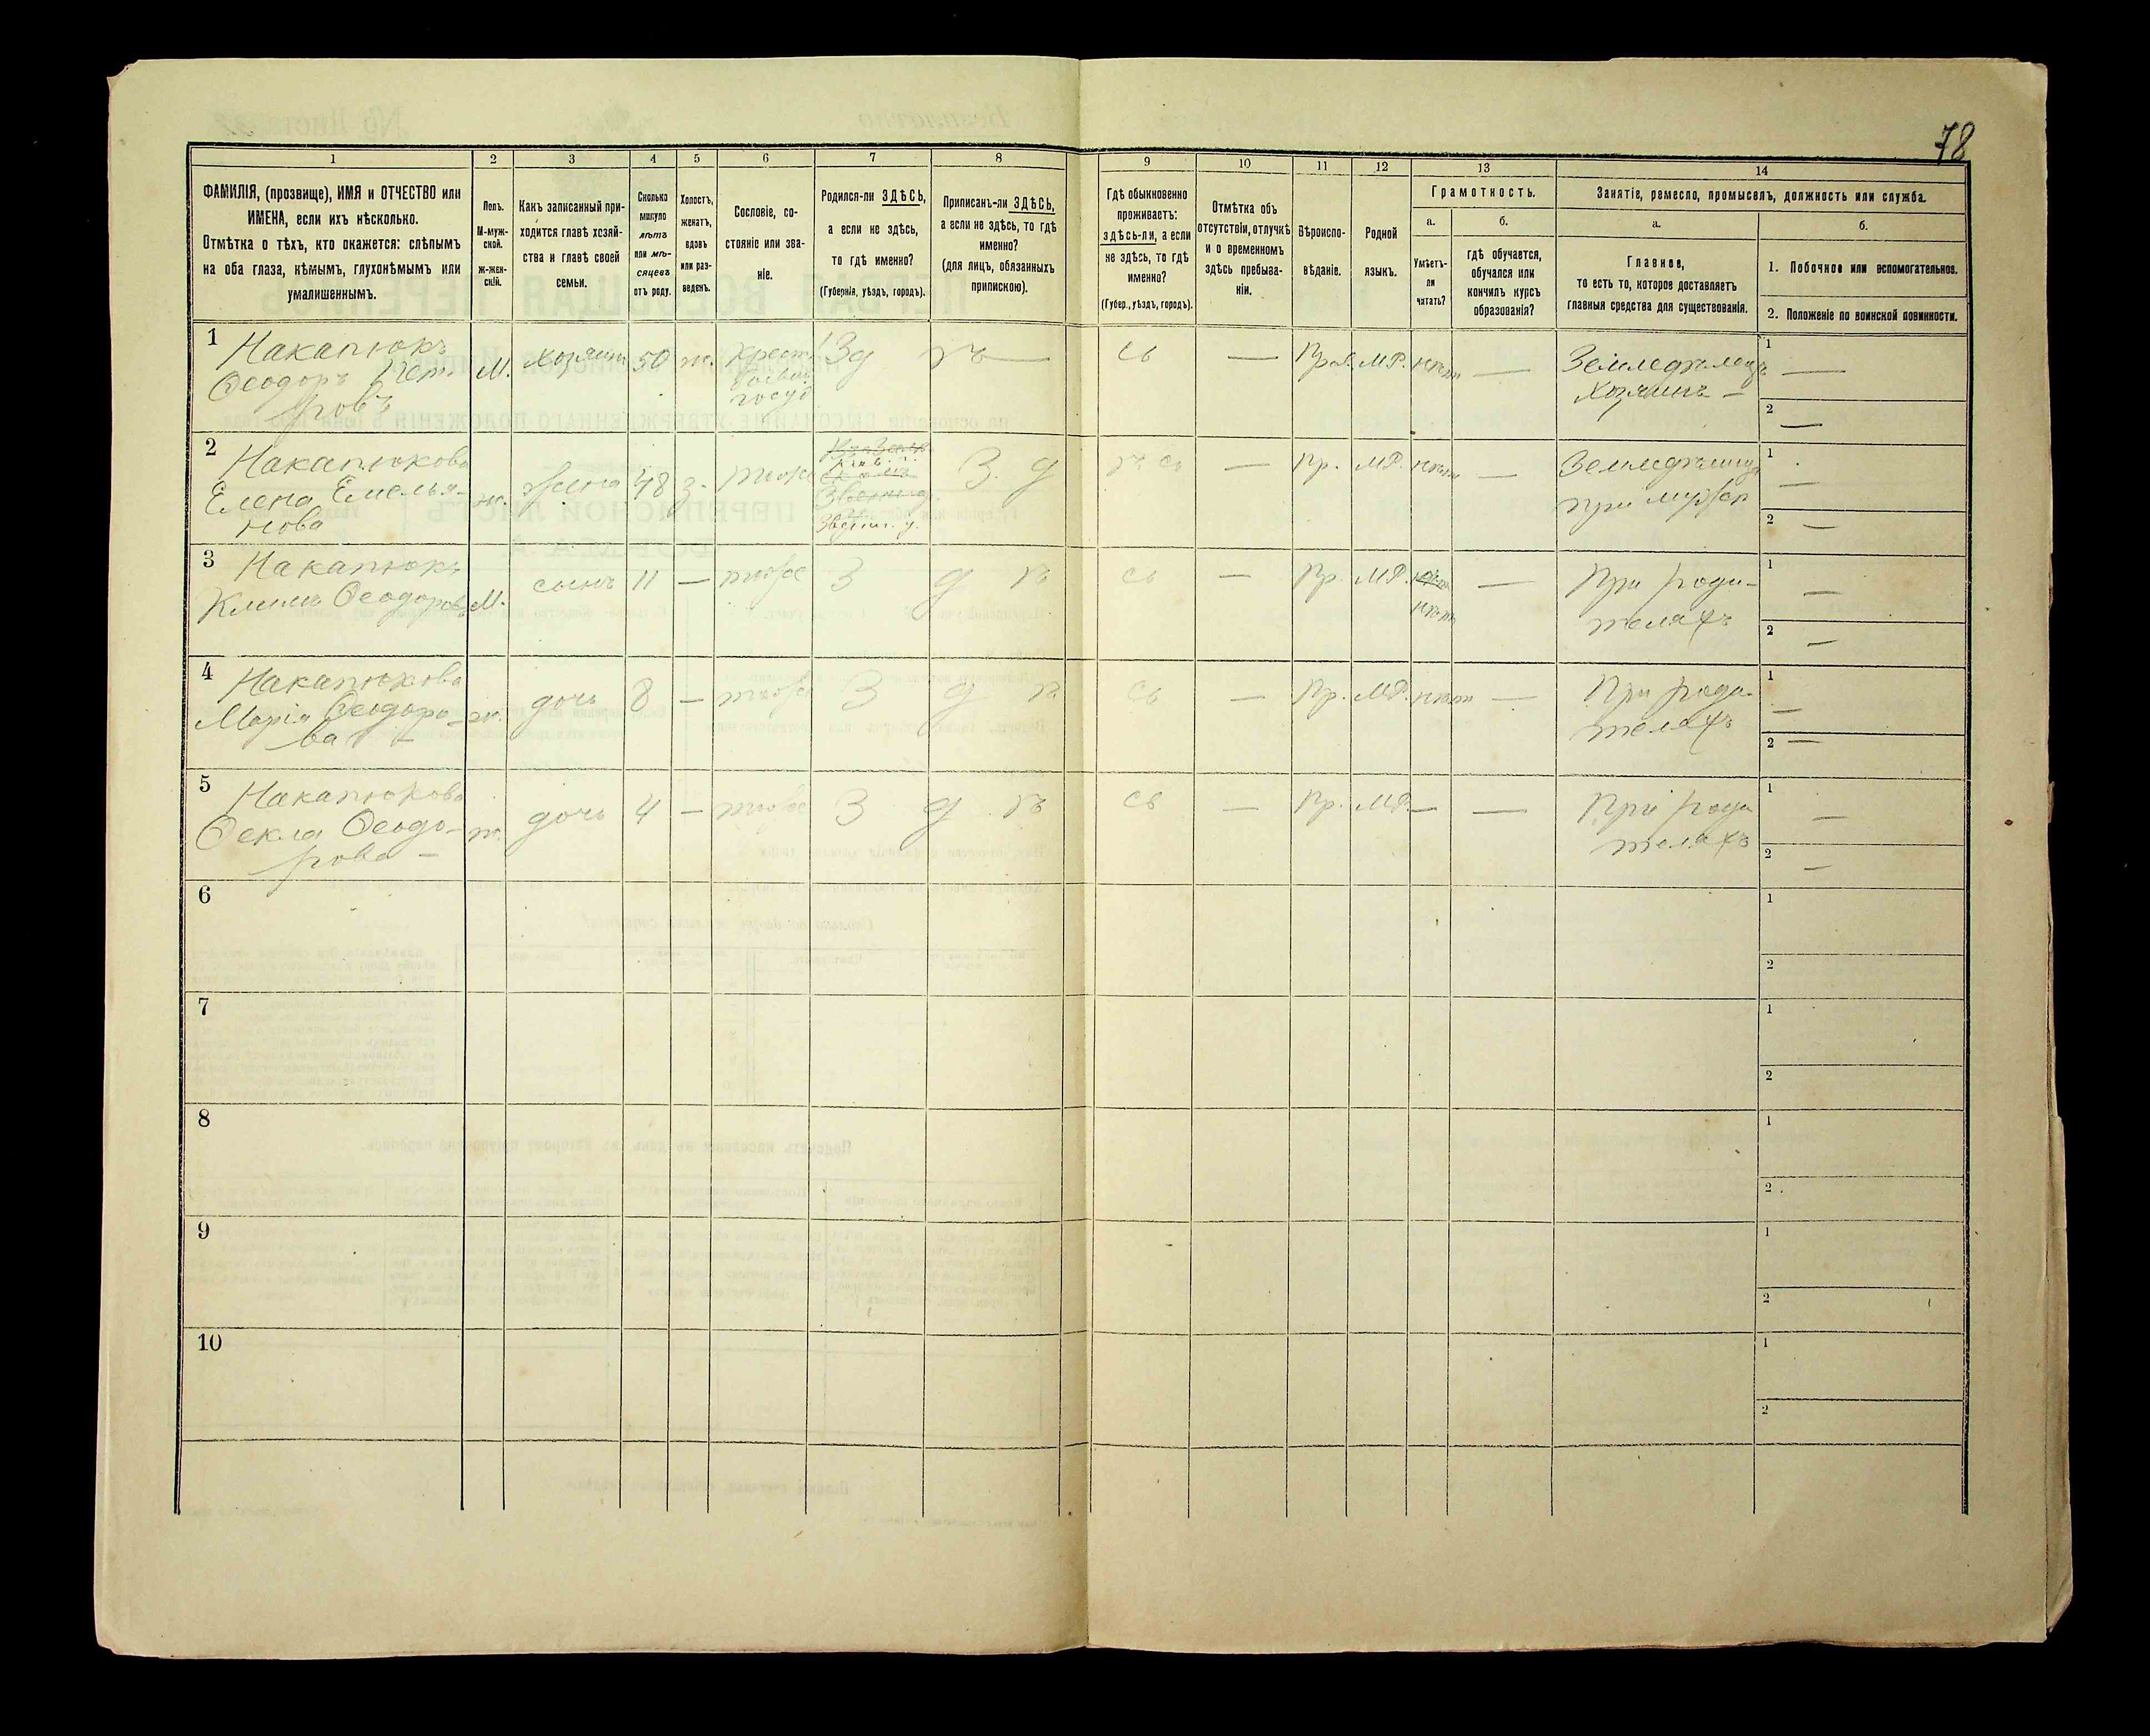 78
1 2 3 4 5 6 7 8 9 10 11 12 13 14
ФАМИЛІЯ, (прозвище), ИМЯ и ОТЧЕСТВО или
ИМЕНА, если ихъ нѣсколько.
Отмѣтка о тѣхъ, кто окажется: слѣпымъ
на оба глаза, нѣмымъ, глухонѣмымъ или
умалишеннымъ.
Полъ.
М-муж-
ской.
Ж-жен-
скій.
Какъ записанный при-
ходится главѣ хозяй-
ства и главѣ своей
семьи.
Сколько
минуло
лѣтъ
или мѣ-
сяцевъ
отъ роду.
Холостъ,
женатъ,
вдовъ
или раз-
веденъ.
Сословіе, со-
стояніе или зва-
ніе.
Родился-ли ЗДѢСЬ,
а если не здѣсь,
то гдѣ именно?
(Губернія, уѣздъ, городъ).
Приписанъ-ли ЗДѢСЬ,
а если не здѣсь, то гдѣ
именно?
(для лицъ, обязанныхъ
припискою).
Гдѣ обыкновенно
проживаетъ:
здѣсь-ли, а если
не здѣсь, то гдѣ
именно?
(Губер., уѣздъ, городъ).
Отмѣтка объ
отсутствіи, отлучкѣ
и о временномъ
здѣсь пребыва-
ніи.
Вѣроиспо-
вѣданіе.
Родной
языкъ.
Грамотность.
а.
Умѣетъ-
ли
читать?
б.
гдѣ обучается,
обучался или
кончилъ курсъ
образованія?
Занятіе, ремесло, промыселъ, должность или служба.
а.
Главное,
то есть то, которое доставляетъ
главныя средства для существованія.
б.
1. Побочное или вспомогательное.
2. Положеніе по воинской повинности.
1 Накапюкъ
Ѳеодоръ Пет-
ровъ
М. хозяинъ 50 ж. Крест.
госуд.
Зд ѣ сь — Прав. М.Р. нѣтъ — Земледѣлецъ
хозяинъ —
1 —
2 —
2 Накапюкова
Елена Емелья-
нова
ж. жена 48 з. тоже
Звениг. у.
З. д ѣ сь — Пр. М.Р. нѣтъ —
при
1 —
2 —
3 Накапюкъ
Климъ Ѳеодоровъ
М. сынъ 11 — тоже З д ѣ сь — Пр. М.Р. нѣтъ — При роди-
теляхъ
1 —
2 —
4 Накапюкова
Марія Ѳеодоро-
ва —
ж. дочь 8 — тоже З д ѣ сь — Пр. М.Р. нѣтъ — При роди-
теляхъ
1 —
2 —
5 Накапюкова
Ѳекла Ѳеодо-
рова —
ж. дочь 4 — тоже З д ѣ сь — Пр. М.Р. — — При роди
теляхъ
1 —
2 —
6 1
2
7 1
2
8 1
2
9 1
2
10 1
2